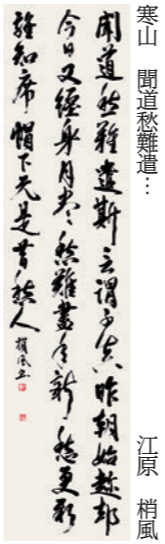 寒山　聞道愁難遣…　江原　梢風
聞道愁難遣斯言謂不真昨朝始趁却
今日又纏身月盡愁難盡年新愁更新
誰知席帽下元是昔愁人　梢風書